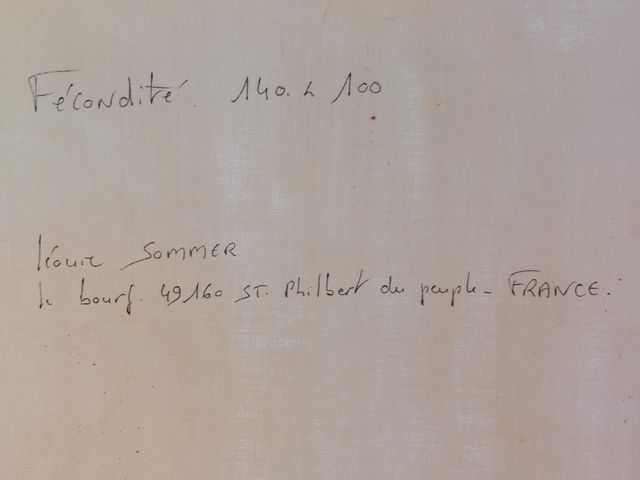 Fécondité. 140 x 100
Léonie SOMMER
le bourg. 49160 ST. Philbert du peuple - FRANCE.